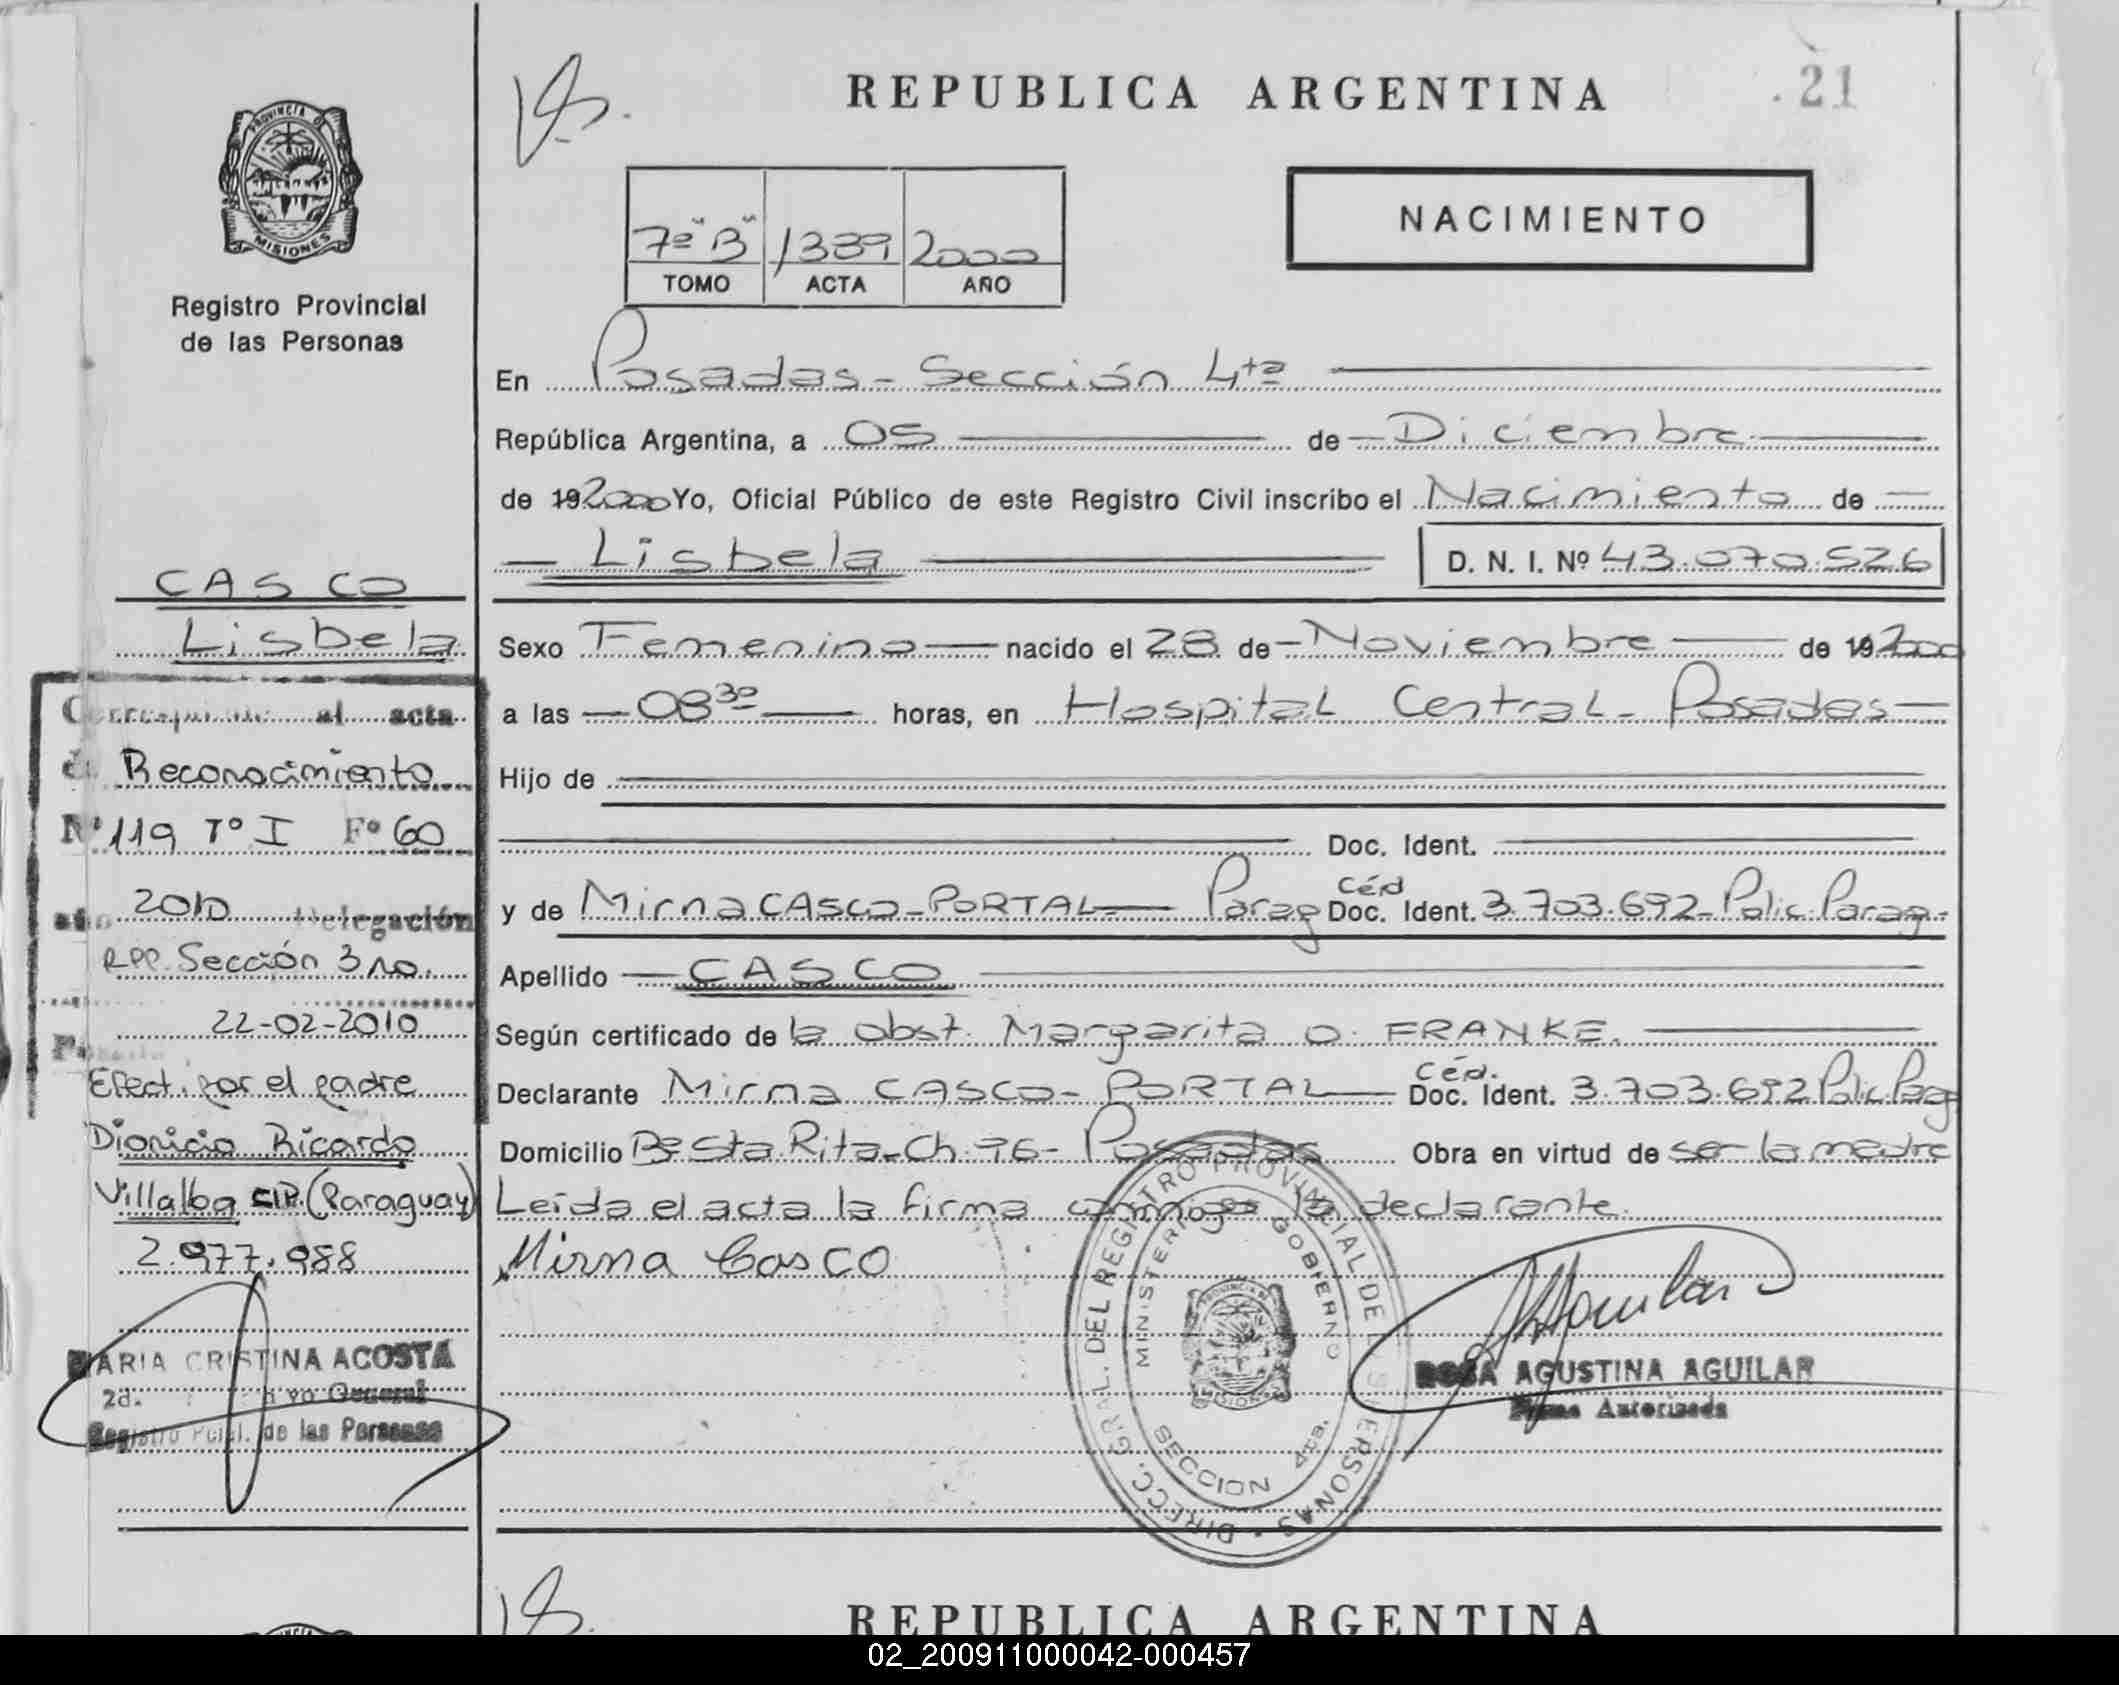 REPUBLICA ARGENTINA
21
PROVINCIA DE
MISIONES
Registro Provincial
de las Personas
7º "B" 1339 2000
TOMO ACTA AÑO
NACIMIENTO
En Posadas - Sección 4ta
República Argentina, a 05 de Diciembre
de 192000 Yo, Oficial Público de este Registro Civil inscribo el Nacimiento de
Lisbela D. N. I. Nº 43.070.526
Sexo Femenino nacido el 28 de Noviembre de 192000
a las 08 30 horas, en Hospital Central - Posadas
Hijo de
Doc. Ident.
y de Mirna CASCO - PORTAL Parag Céd Doc. Ident. 3.703.692 - Polic. Parag -
Apellido CASCO
Según certificado de la obst. Margarita O. FRANKE.
Declarante Mirna CASCO - PORTAL Céd. Doc. Ident. 3.703.692 Polic. Parag
Domicilio Bº Sta Rita - Ch. 96 - Posadas Obra en virtud de ser la madre
Leída el acta la firma conmigo la declarante.
Mirna Casco
CASCO
Lisbela
Correspponde al acta
de Reconocimiento
Nº 119 Tº I Fº 60
año 2010 Delegación
RPP. Sección 3ra.
22-02-2010
Efect. por el padre
Dionicio Ricardo
Villalba C.I.P. (Paraguay)
2.977.988
MARIA CRISTINA ACOSTA
General
Registro Pcial. de las Personas
DIRECC. GRAL. DEL REGISTRO PROVINCIAL DE LAS PERSONAS
MINISTERIO GOBIERNO
SECCION 4ta.
ROSA AGUSTINA AGUILAR
Firma Autorizada
REPUBLICA ARGENTINA
02_200911000042-000457